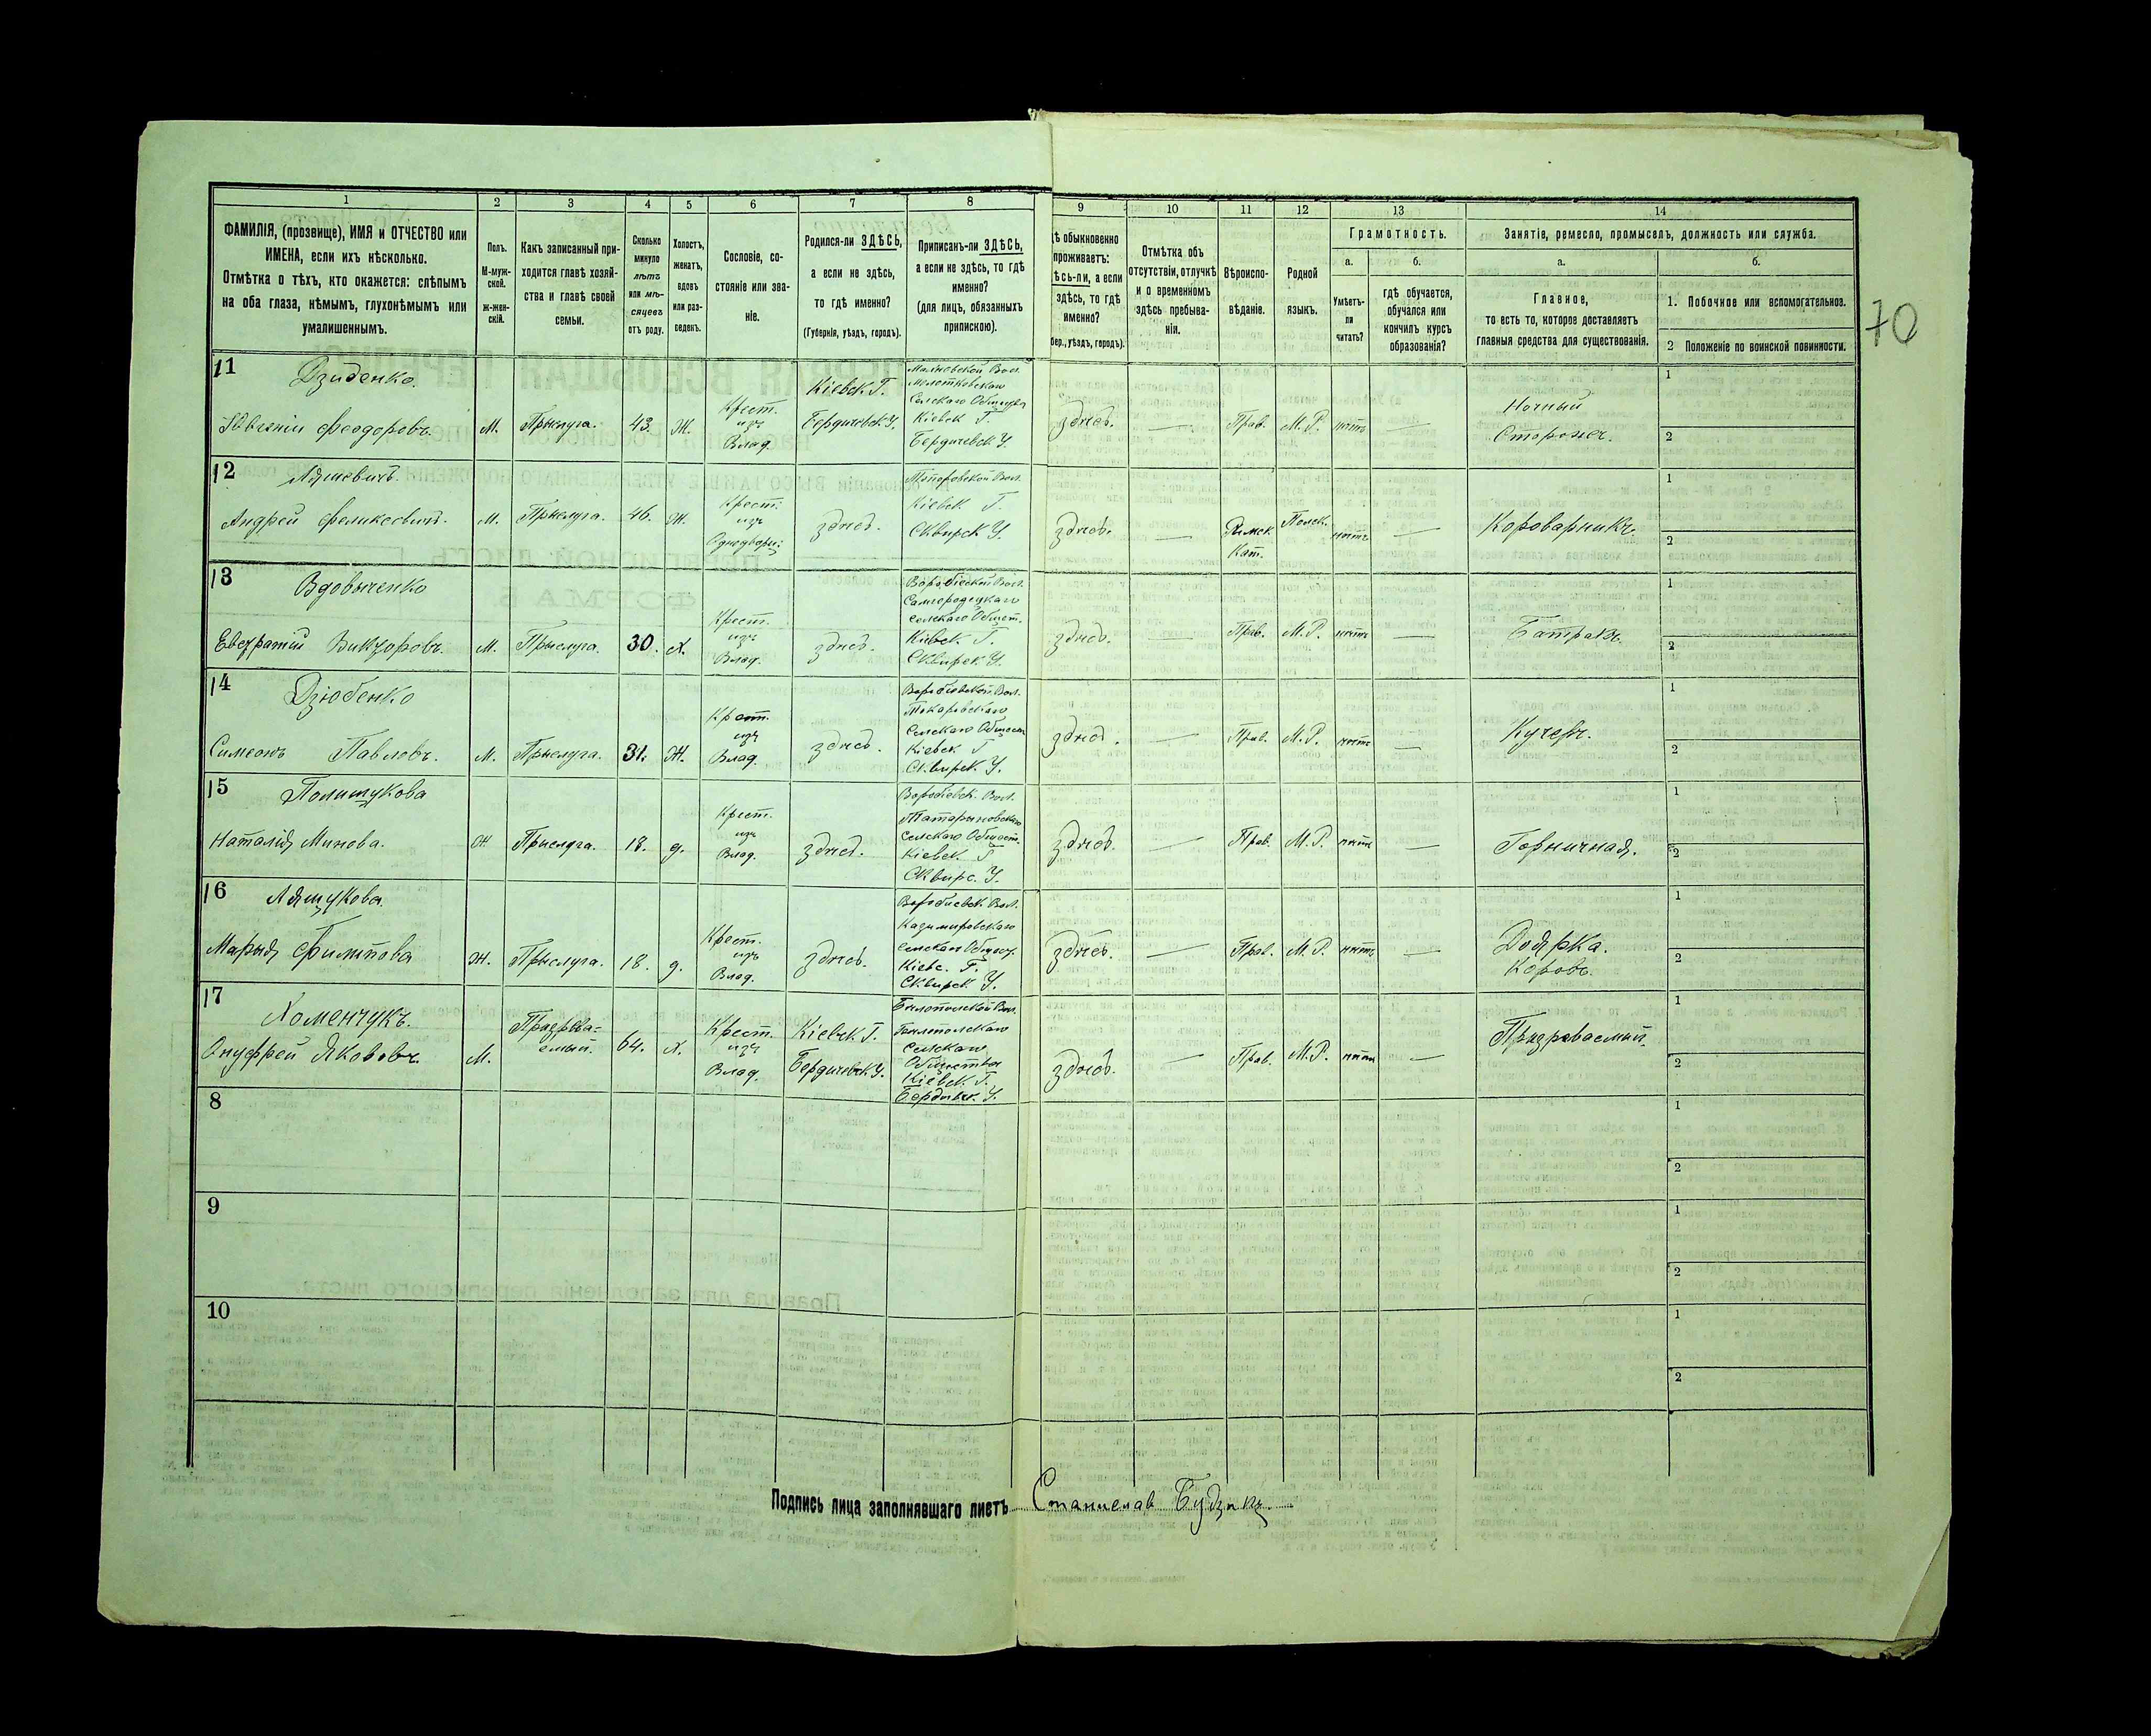 1 2 3 4 5 6 7 8 9 10 11 12 13 14
ФАМИЛІЯ, (прозвище), ИМЯ и ОТЧЕСТВО или
ИМЕНА, если ихъ нѣсколько.
Отмѣтка о тѣхъ, кто окажется: слѣпымъ
на оба глаза, нѣмымъ, глухонѣмымъ или
умалишеннымъ.
Полъ.
М-муж-
ской.
ж-жен-
скій.
Какъ записанный при-
ходится главѣ хозяй-
ства и главѣ своей
семьи.
Сколько
минуло
лѣтъ
или мѣ-
сяцевъ
отъ роду.
Холостъ,
женатъ,
вдовъ
или раз-
веденъ.
Сословіе, со-
стояніе или зва-
ніе.
Родился-ли ЗДѢСЬ,
а если не здѣсь,
то гдѣ именно?
(Губернія, уѣздъ, городъ).
Приписанъ-ли ЗДѢСЬ,
а если не здѣсь, то гдѣ
именно?
(для лицъ, обязанныхъ
припискою).
ѣ обыкновенно
проживаетъ:
ѣсь-ли, а если
здѣсь, то гдѣ
именно?
бер., уѣздъ, городъ).
Отмѣтка объ
отсутствіи, отлучкѣ
и о временномъ
здѣсь пребыва-
ніи.
Вѣроиспо-
вѣданіе.
Родной
языкъ.
Грамотность.
а. б.
Умѣетъ-
ли
читать?
гдѣ обучается,
обучался или
кончилъ курсъ
образованія?
Занятіе, ремесло, промыселъ, должность или служба.
а. б.
Главное,
то есть то, которое доставляетъ
главныя средства для существованія.
1. Побочное или вспомогательное.
2 Положеніе по воинской повинности.
70
11 Дзиденко.
Евгеній Феодоровъ. М. Прыслуга. 43. Ж.
Крест.
изъ
Влад.
Кіевск. Г.
Бердичевск. У.
Сельскаго
Кіевск Г.
Бердичевск У.
здѣсь. — Прав. М. Р. нѣтъ —
Ночный
Сторожъ.
1
2
12 Ляшевичъ.
Андрей Феликсевичъ. М. Прыслуга. 46. Ж.
Крест.
изъ
Однодворц.
здѣсь.
Кіевск Г.
Сквирск У.
здѣсь. —
Римск.
Кат.
Польск. нѣтъ — Короварникъ.
1
2
13 Вдовыченко
Викторовъ. М. Прыслуга. 30. Х.
Крест.
изъ
Влад.
здѣсь.
Самгородецкаго
Сельскаго Общест.
Кіевск. Г.
Сквирск. У.
здѣсь. — Прав. М. Р. нѣтъ — Батракъ.
1
2
14 Дзюбенко
Симеонъ Павловъ. М. Прыслуга. 31. Ж.
Крест.
изъ
Влад.
здѣсь.
Воробіевской Вол.
Токаровскаго
Сельскаго Общест
Кіевск Г
Сквирск. У.
здѣсь. — Прав. М. Р. нѣтъ — Кучеръ.
1
2
15 Полищукова
Наталія Минова. Ж Прыслуга. 18. д.
Крест.
изъ
Влад.
здѣсь.
Воробіевск. Вол.
Татарыновскаго
Сельскаго Общест.
Кіевск. Г
Сквирс. У.
здѣсь. — Прав. М. Р. нѣтъ — Горничная.
1
2
16 Лящукова.
Марыя Филипова Ж. Прыслуга. 18. д.
Крест.
изъ
Влад.
здѣсь.
Воробиевск. Вол.
Казимировскаго
Сельскаго Общест.
Кіевс. Г.
Сквирск. У.
здѣсь. — Прав. М. Р. нѣтъ —
Доярка.
Коровъ.
1
2
17 Хоменчукъ.
Онуфрей Якововъ. М.
Призрѣва-
емый.
64. Х.
Крест.
изъ
Влад.
Кіевск. Г.
Бердичевск. У.
Бѣлопольской Вол.
Бѣлопольскаго
Сельскаго
Общества
Кіевск. Г.
Бердичев. У.
здѣсь. — Прав. М. Р. нѣтъ — Призрѣваемый.
1
2
8
1
2
9
1
2
10
1
2
Подпись лица заполнявшаго листъ Станислав